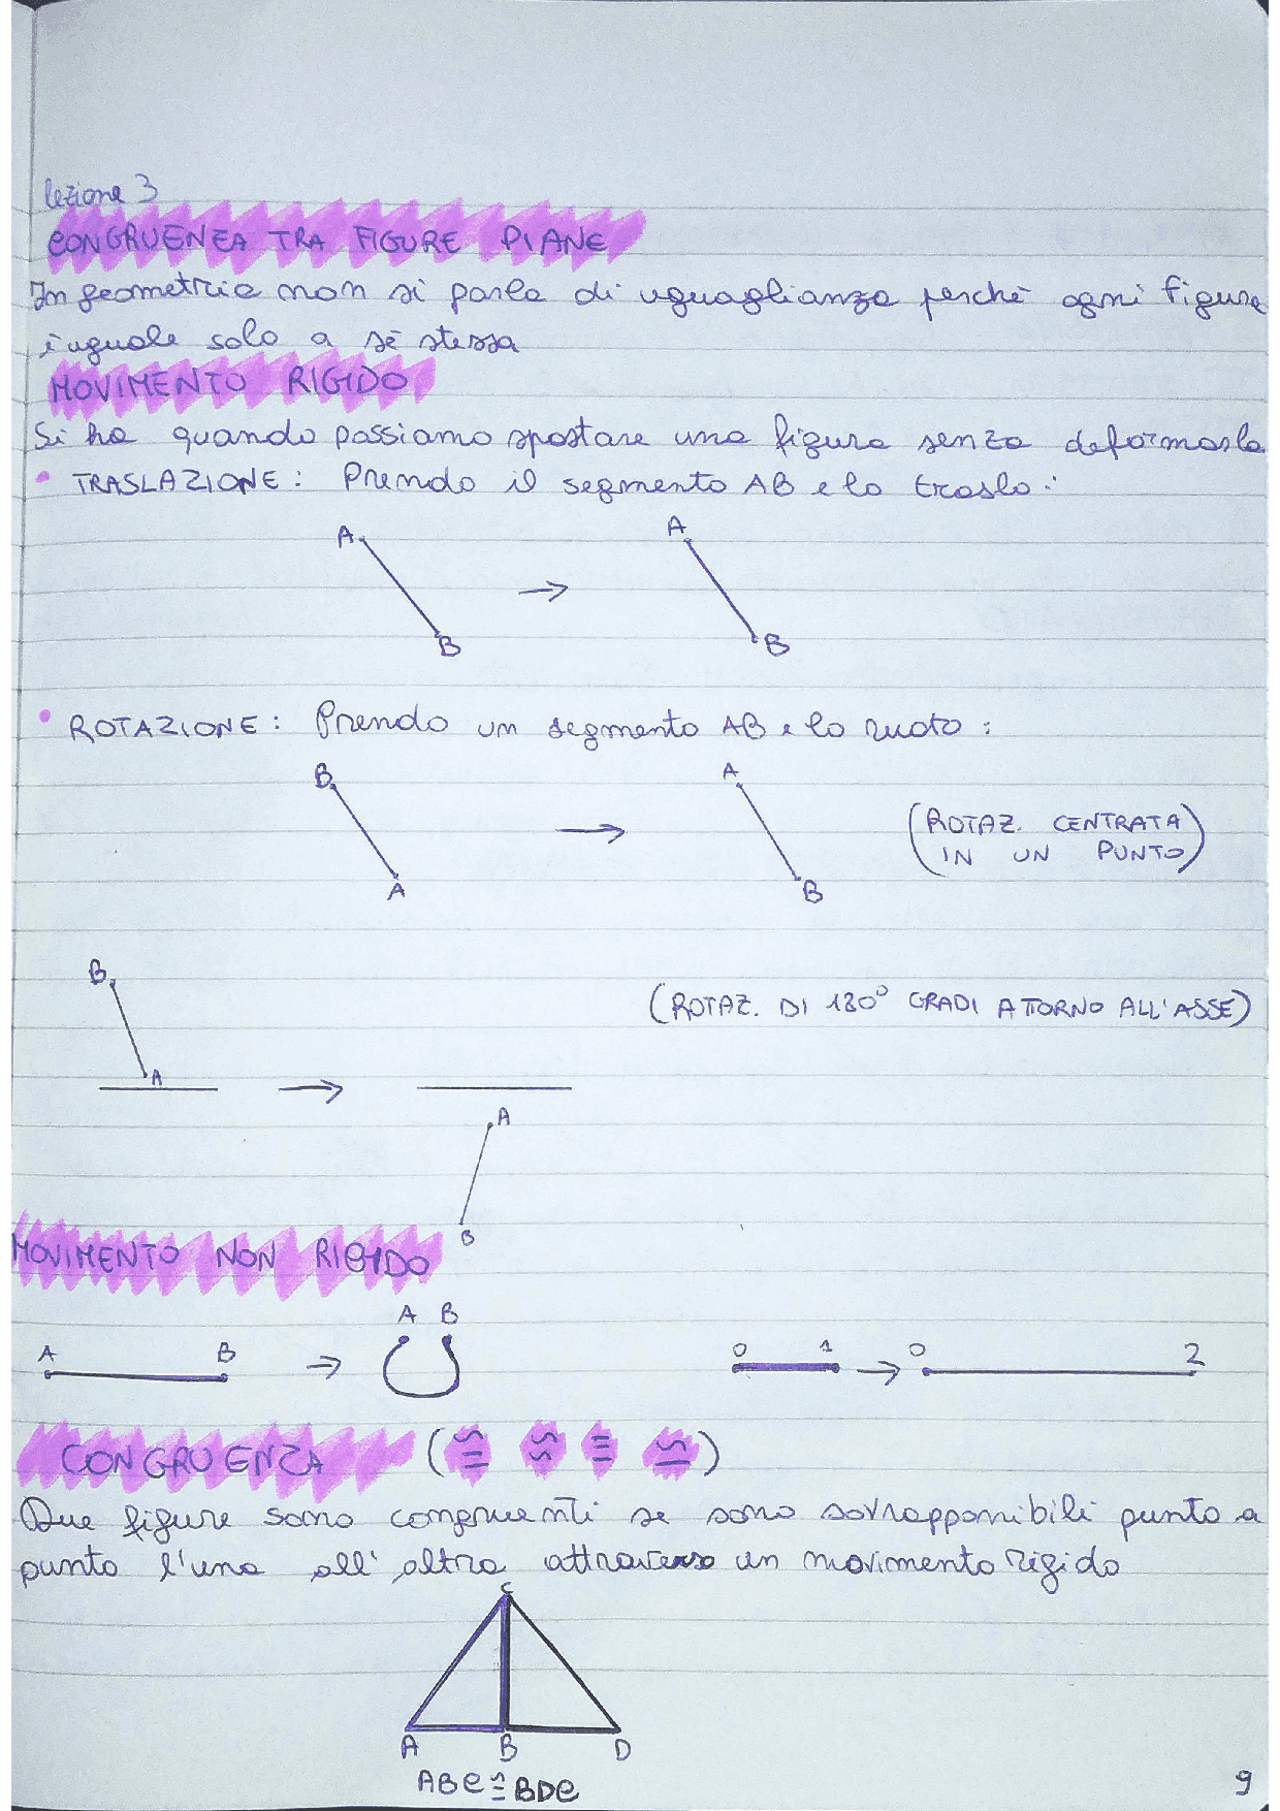 lezione 3
CONGRUENZA TRA FIGURE PIANE
In geometria non si parla di uguaglianza perchè ogni figura
è uguale solo a sè stessa
MOVIMENTO RIGIDO
Si ha quando possiamo spostare una figura senza deformarla
• TRASLAZIONE: Prendo il segmento AB e lo traslo:
A A
→
B B
• ROTAZIONE: Prendo un segmento AB e lo ruoto:
B A
→ (ROTAZ. CENTRATA
IN UN PUNTO)
A B
B
(ROTAZ. DI 180° GRADI ATTORNO ALL'ASSE)
A →
A
B
MOVIMENTO NON RIGIDO
A B → A B 0 1 → 0 2
CONGRUENZA (≅ ≈ ≡ ≃)
Due figure sono congruenti se sono sovrapponibili punto a
punto l'una all'altra attraverso un movimento rigido
C
A B D
ABC ≅ BDC
9